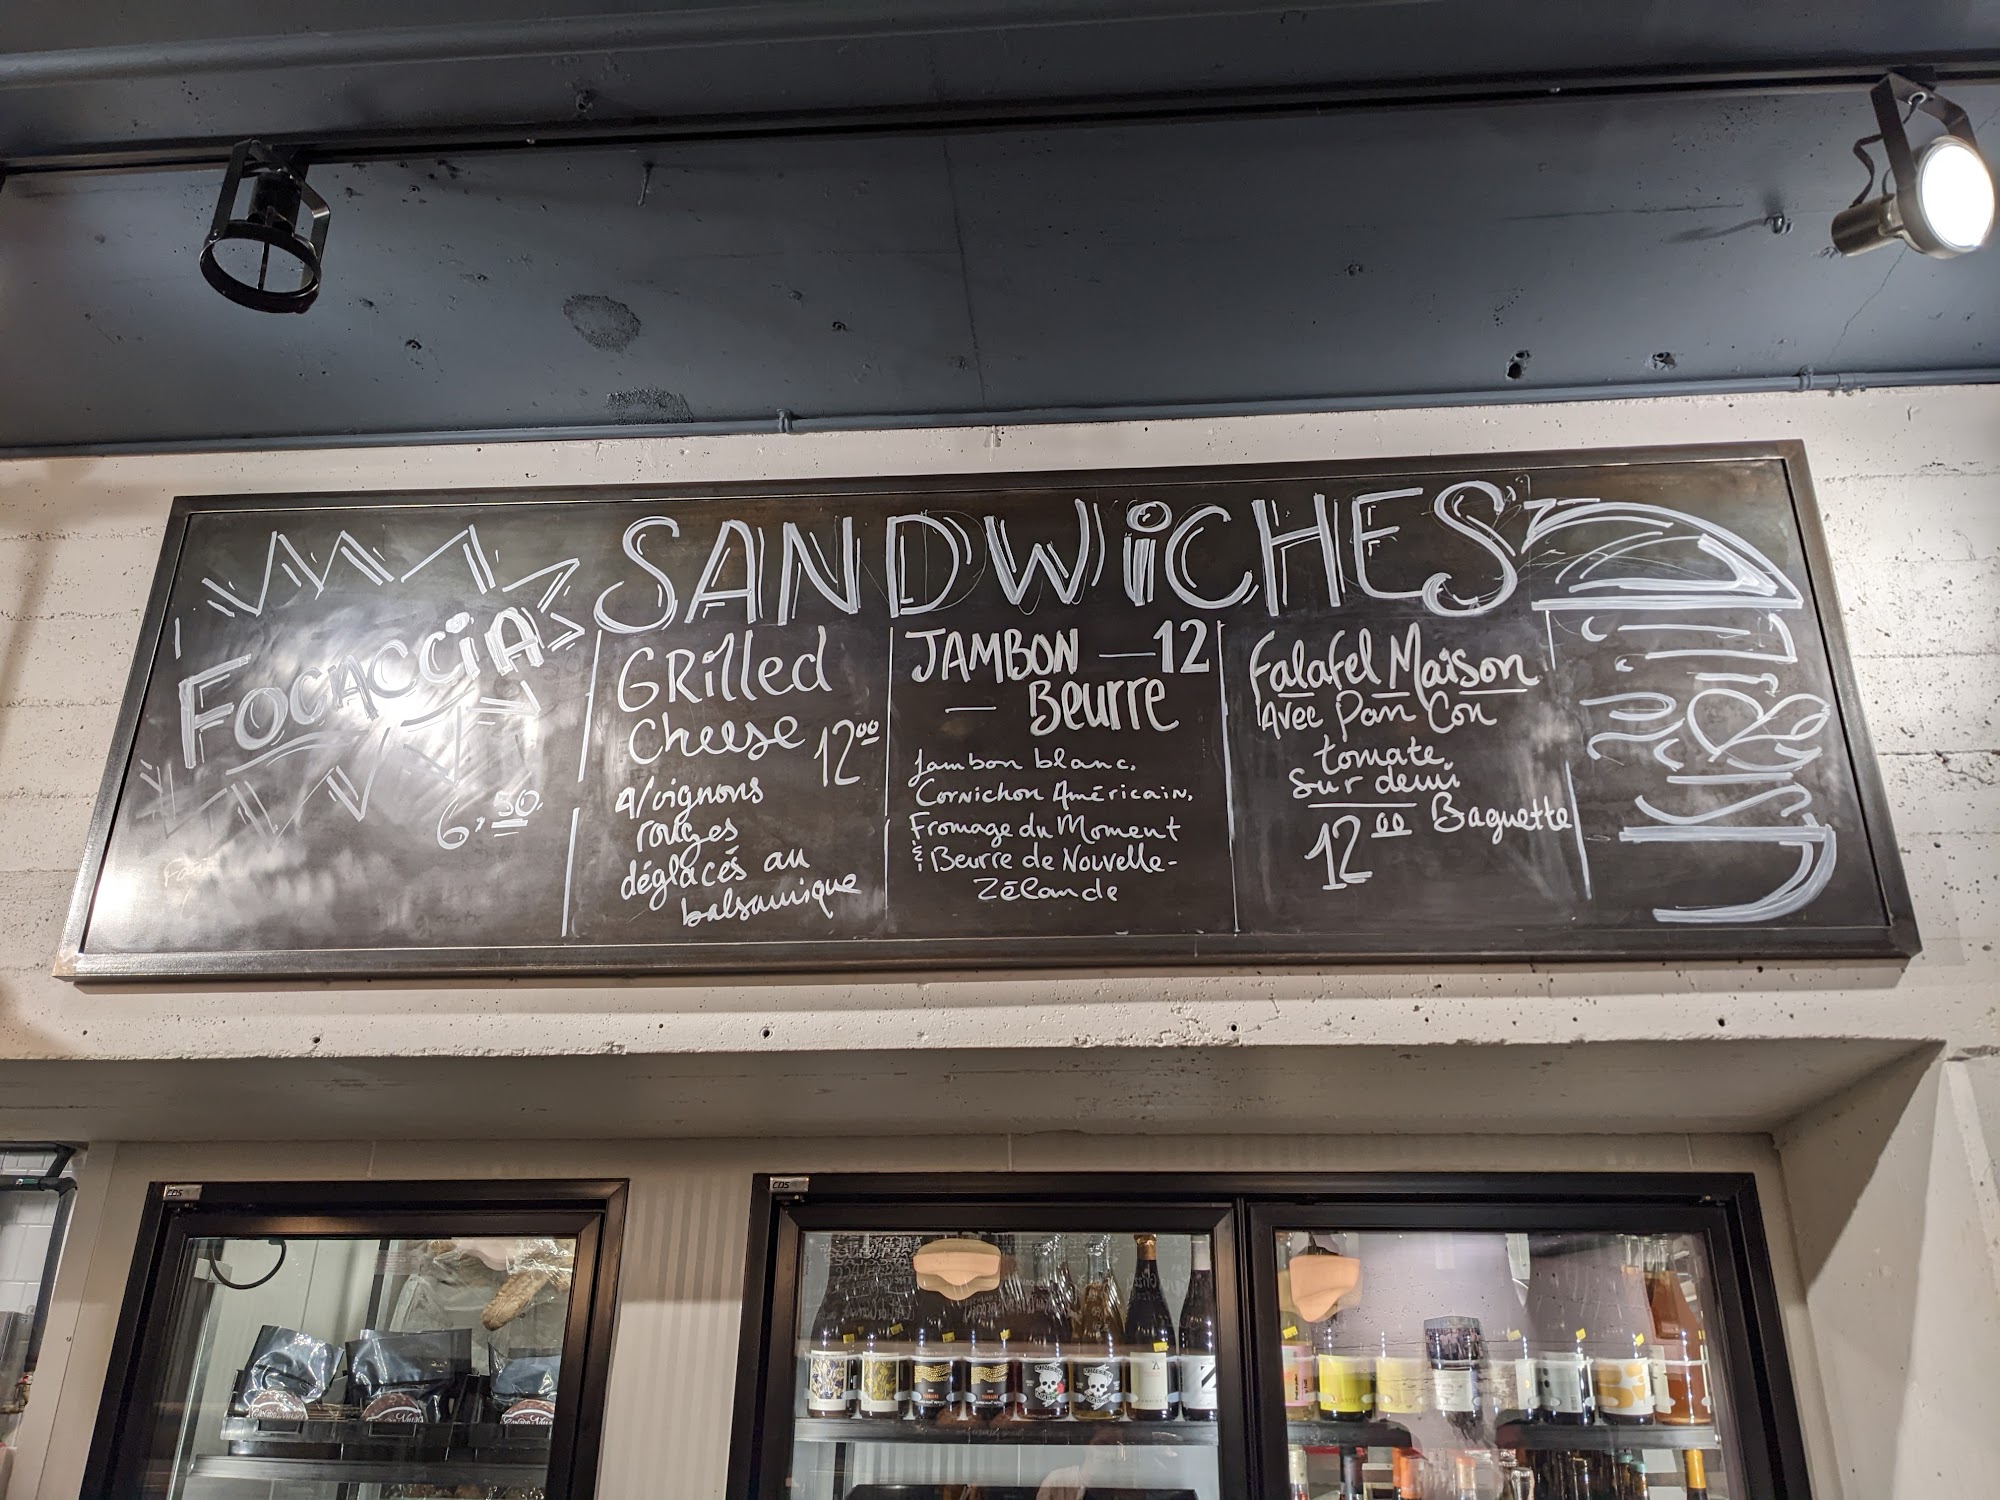 SANDWiCHES
FOCACCiA
6,50
GRilled
Cheese 12 00
A/oignons
rouges
déglacés au
balsamique
JAMBON — 12
— Beurre
Jambon blanc,
Cornichon Américain,
Fromage du Moment
& Beurre de Nouvelle-
Zélande
Falafel Maison
Avec Pan Con
tomate,
Sur demi
Baguette
12 00
CDS
CDS